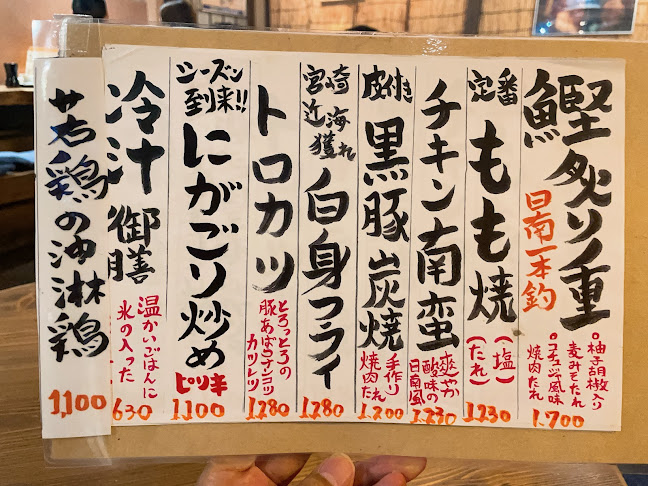 鰹炙り重
日南一本釣
○柚子胡椒入り
麦みそたれ
○コチュジャン風味
焼肉たれ
1,700
定番
もも焼
(塩)
(たれ)
1230
チキン南蛮
爽やか
酸味の
日南風
1,230
皮付き
黒豚炭焼
手作り
焼肉たれ
1,200
宮崎
近海
獲れ
白身フライ
1,280
トロカツ
とろっとろの
豚あばらナンコツ
カツレツ
1,280
シーズン
到来!!
にがごり炒め
ピリ辛
1,100
冷汁御膳
温かいごはんに
氷の入った
630
若鶏の油淋鶏
1,100